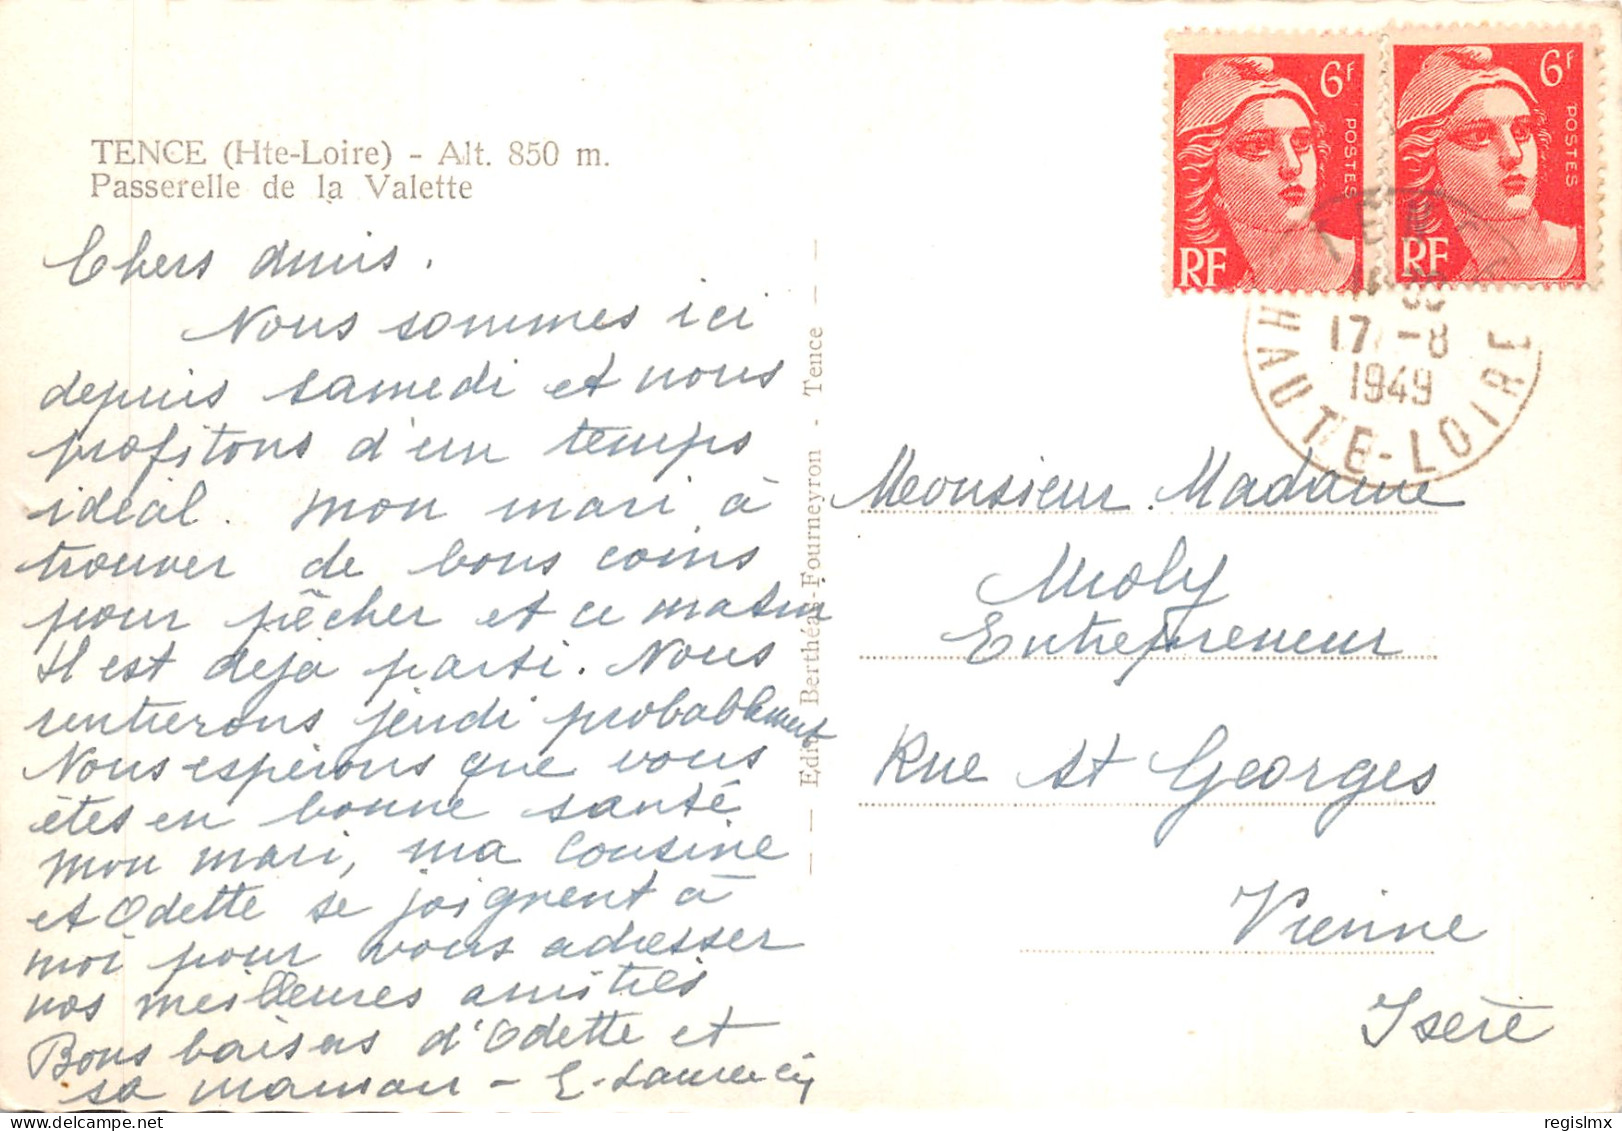 TENCE (Hte-Loire) - Alt. 850 m.
Passerelle de la Valette
Chers amis.
Nous sommes ici
depuis samedi et nous
profitons d'un temps
idéal. Mon mari à
trouver de bons coins
pour pêcher et ce matin
Il est déjà parti. Nous
rentrerons jeudi probablement
Nous espérons que vous
êtes en bonne santé
Mon mari, ma cousine
et Odette se joignent à
moi pour vous adresser
nos meilleures amitiés
Bons baisers d'Odette et
sa maman - E.
Edit. Berthéas-Fourneyron - Tence
6F
POSTES
RF
6F
POSTES
RF
17 -8
1949
HAUTE-LOIRE
Monsieur Madame
Moly
Entrepreneur
Rue St Georges
Vienne
Isère
regislmx